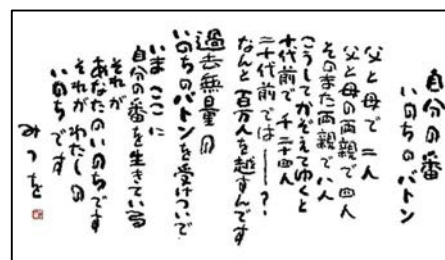 自分の番
いのちのバトン
父と母で二人
父と母の両親で四人
そのまた両親で八人
こうしてかぞえてゆくと
十代前で千二十四人
二十代前では―――?
なんと百万人を越すんです
過去無量の
いのちのバトンを受けついで
いまここに
自分の番を生きている
それが
あなたのいのちです
それがわたしの
いのちです
みつを